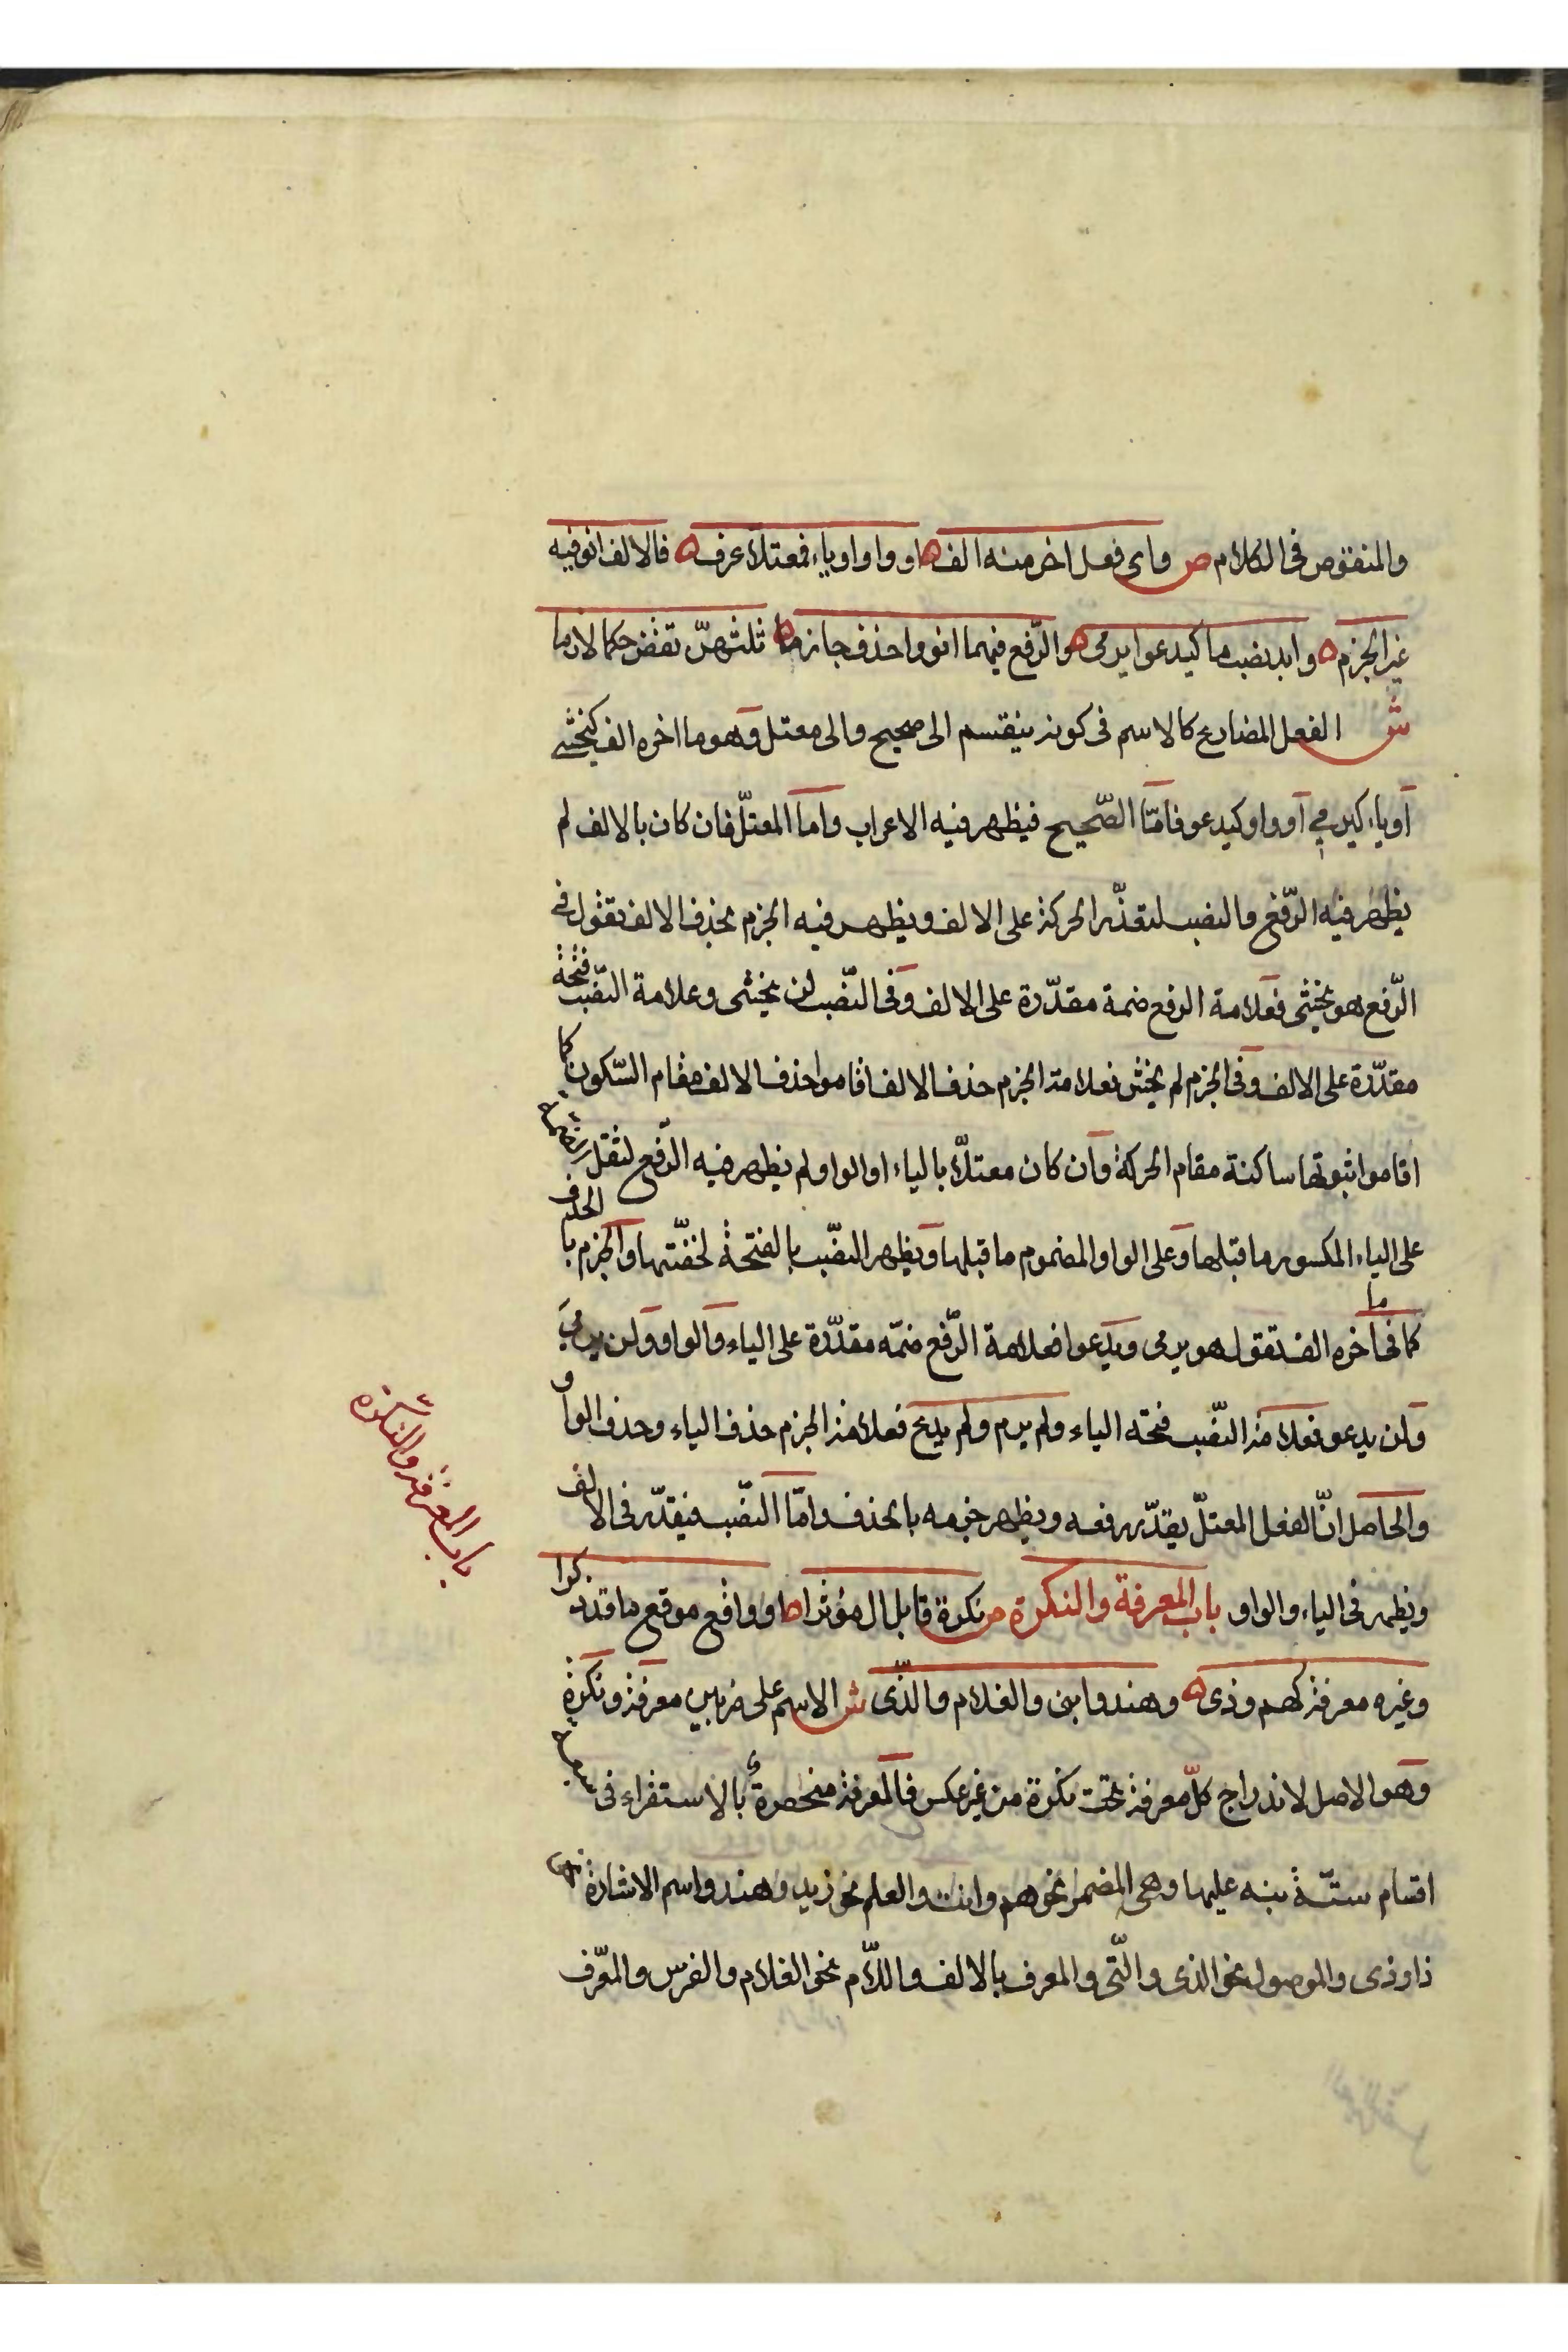 والمنقوص فى الكلام ص واى فعل اخر منه الف ه او واو او ياء فمعتلا عرف ه فالالف انو فيه
غير الجزم ه وابد نصب ما كيدعوا يرمى ه والرّفع فيهما انو واحذف جازما ه ثلثهنّ تقض حكما لازما
ش الفعل المضارع كالاسم فى كونه ينقسم الى صحيح والى معتل وهو ما اخره الف كيخشى
او ياء كيرمي او واو كيدعو فامّا الصّحيح فيظهر فيه الاعراب واما المعتلّ فان كان بالالف لم
يظهر فيه الرّفع والنصب لتعذّر الحركة على الالف ويظهر فيه الجزم بحذف الالف تقول فى
الرّفع هو يخشى فعلامة الرفع ضمة مقدّرة على الالف وفى النّصب لن يخشى وعلامة النّصب فتحة
مقدّرة على الالف وفى الجزم لم يخش فعلامة الجزم حذف الالف اقاموا حذف الالف مقام السّكون كا
اقاموا ثبوتها ساكنة مقام الحركة وان كان معتلّا بالياء او الواو لم يظهر فيه الرّفع لثقل
على الياء المكسور ما قبلها وعلى الواو المضموم ما قبلها ويظهر النصّب بالفتحة لخفّتها والجزم با لحذف
كما فى ما اخره الف تقول هو يرمى ويدعوا فعلامة الرّفع ضمّه مقدّرة على الياء والواو ولن يرميَ
ولن يدعو فعلامة النّصب فتحة الياء ولم يرم ولم يدع فعلامة الجزم حذف الياء وحذف الواو
والحاصل انّ الفعل المعتلّ يقدّر رفعه ويظهر جزمه بالحذف وامّا النّصب فيقدّر فى الالف
ويظهر فى الياء والواو باب المعرفة والنكرة ص نكرة قابل ال مؤثرا ه او واقع موقع ما قد ذكرا
وغيره معرفة كهم وذى ه وهند وابنى والغلام والذّى ش الاسم على ضربين معرفة ونكرة
وهو الاصل لاندراج كلّ معرفة تحت نكرة من غير عكس فالمعرفة منحصرة بالاستقراء فى
اقسام ستّة نبه عليها وهى المضمر نحو هم وانت والعلم نحو زيد وهند واسم الاشارة نحو
ذا وذى والموصول نحو الذى والّتى والمعرف بالالف واللّام نحو الغلام والفرس والمعّرف
باب المعرفة والنكرة